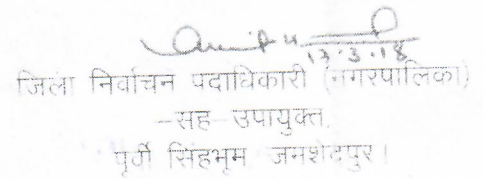 17.3.18
जिला निर्वाचन पदाधिकारी (नगरपालिका)
-सह-उपायुक्त,
पूर्वी सिंहभूम जमशेदपुर।